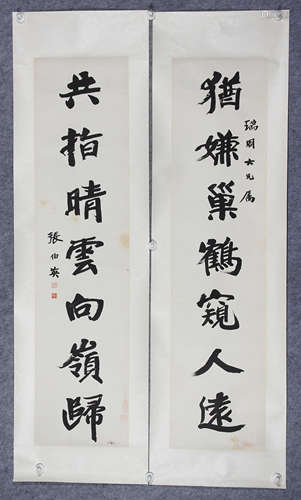 猶嫌巢鶴窺人遠
瑞開士兄属
共指晴雲向嶺歸
張伯英